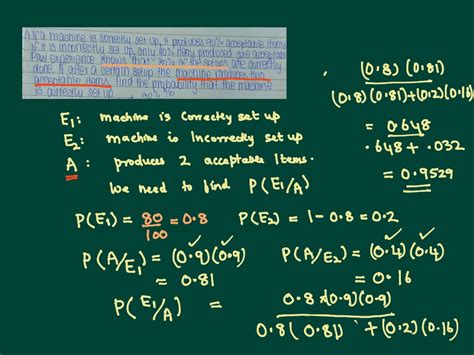 If a machine is correctly set up, it produces 90% acceptable items.
If it is incorrectly set up, only 40% items produced are acceptable.
Past experience shows that % of the setups are correctly
done. If after a certain setup the machine produces two
acceptable items, find the probability that the machine
is correctly set up.
E₁: machine is Correctly set up
E₂: machine is Incorrectly set up
A: produces 2 acceptable Items.
We need to find P(E₁/A)
P(E₁) = 80/100 = 0.8 P(E₂) = 1 - 0.8 = 0.2
P(A/E₁) = (0.9)(0.9) P(A/E₂) = (0.4)(0.4)
= 0.81 = 0.16
P(E₁/A) = 0.8 × (0.9)(0.9)
0.8(0.81) + (0.2)(0.16)
(0.8)(0.81)
(0.8)(0.81)+(0.2)(0.16)
= 0.648
.648 + .032
= 0.9529